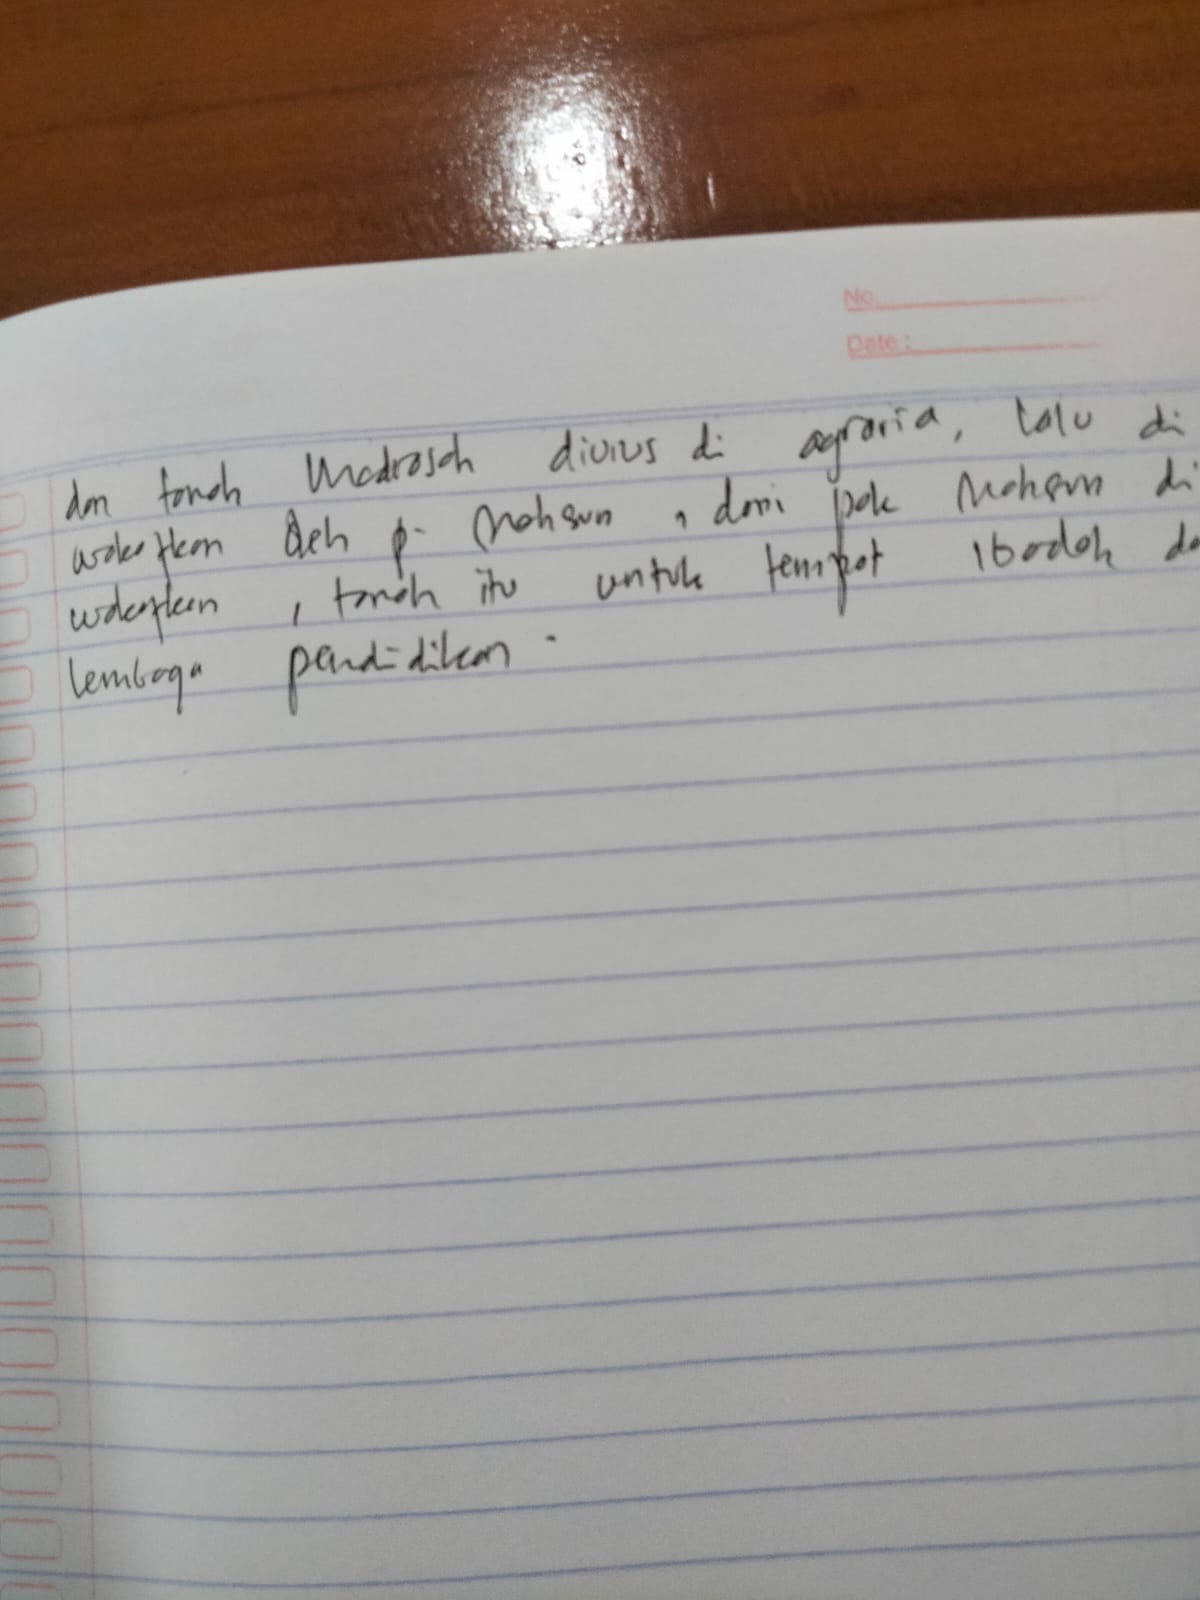 No.
Date :
dan tanah Madrasah diurus di agraria, lalu di
wakafkan oleh p. Mohsun, dari pak Mohsun di
wakafkan, tanah itu untuk tempat ibadah da
lembaga pendidikan.